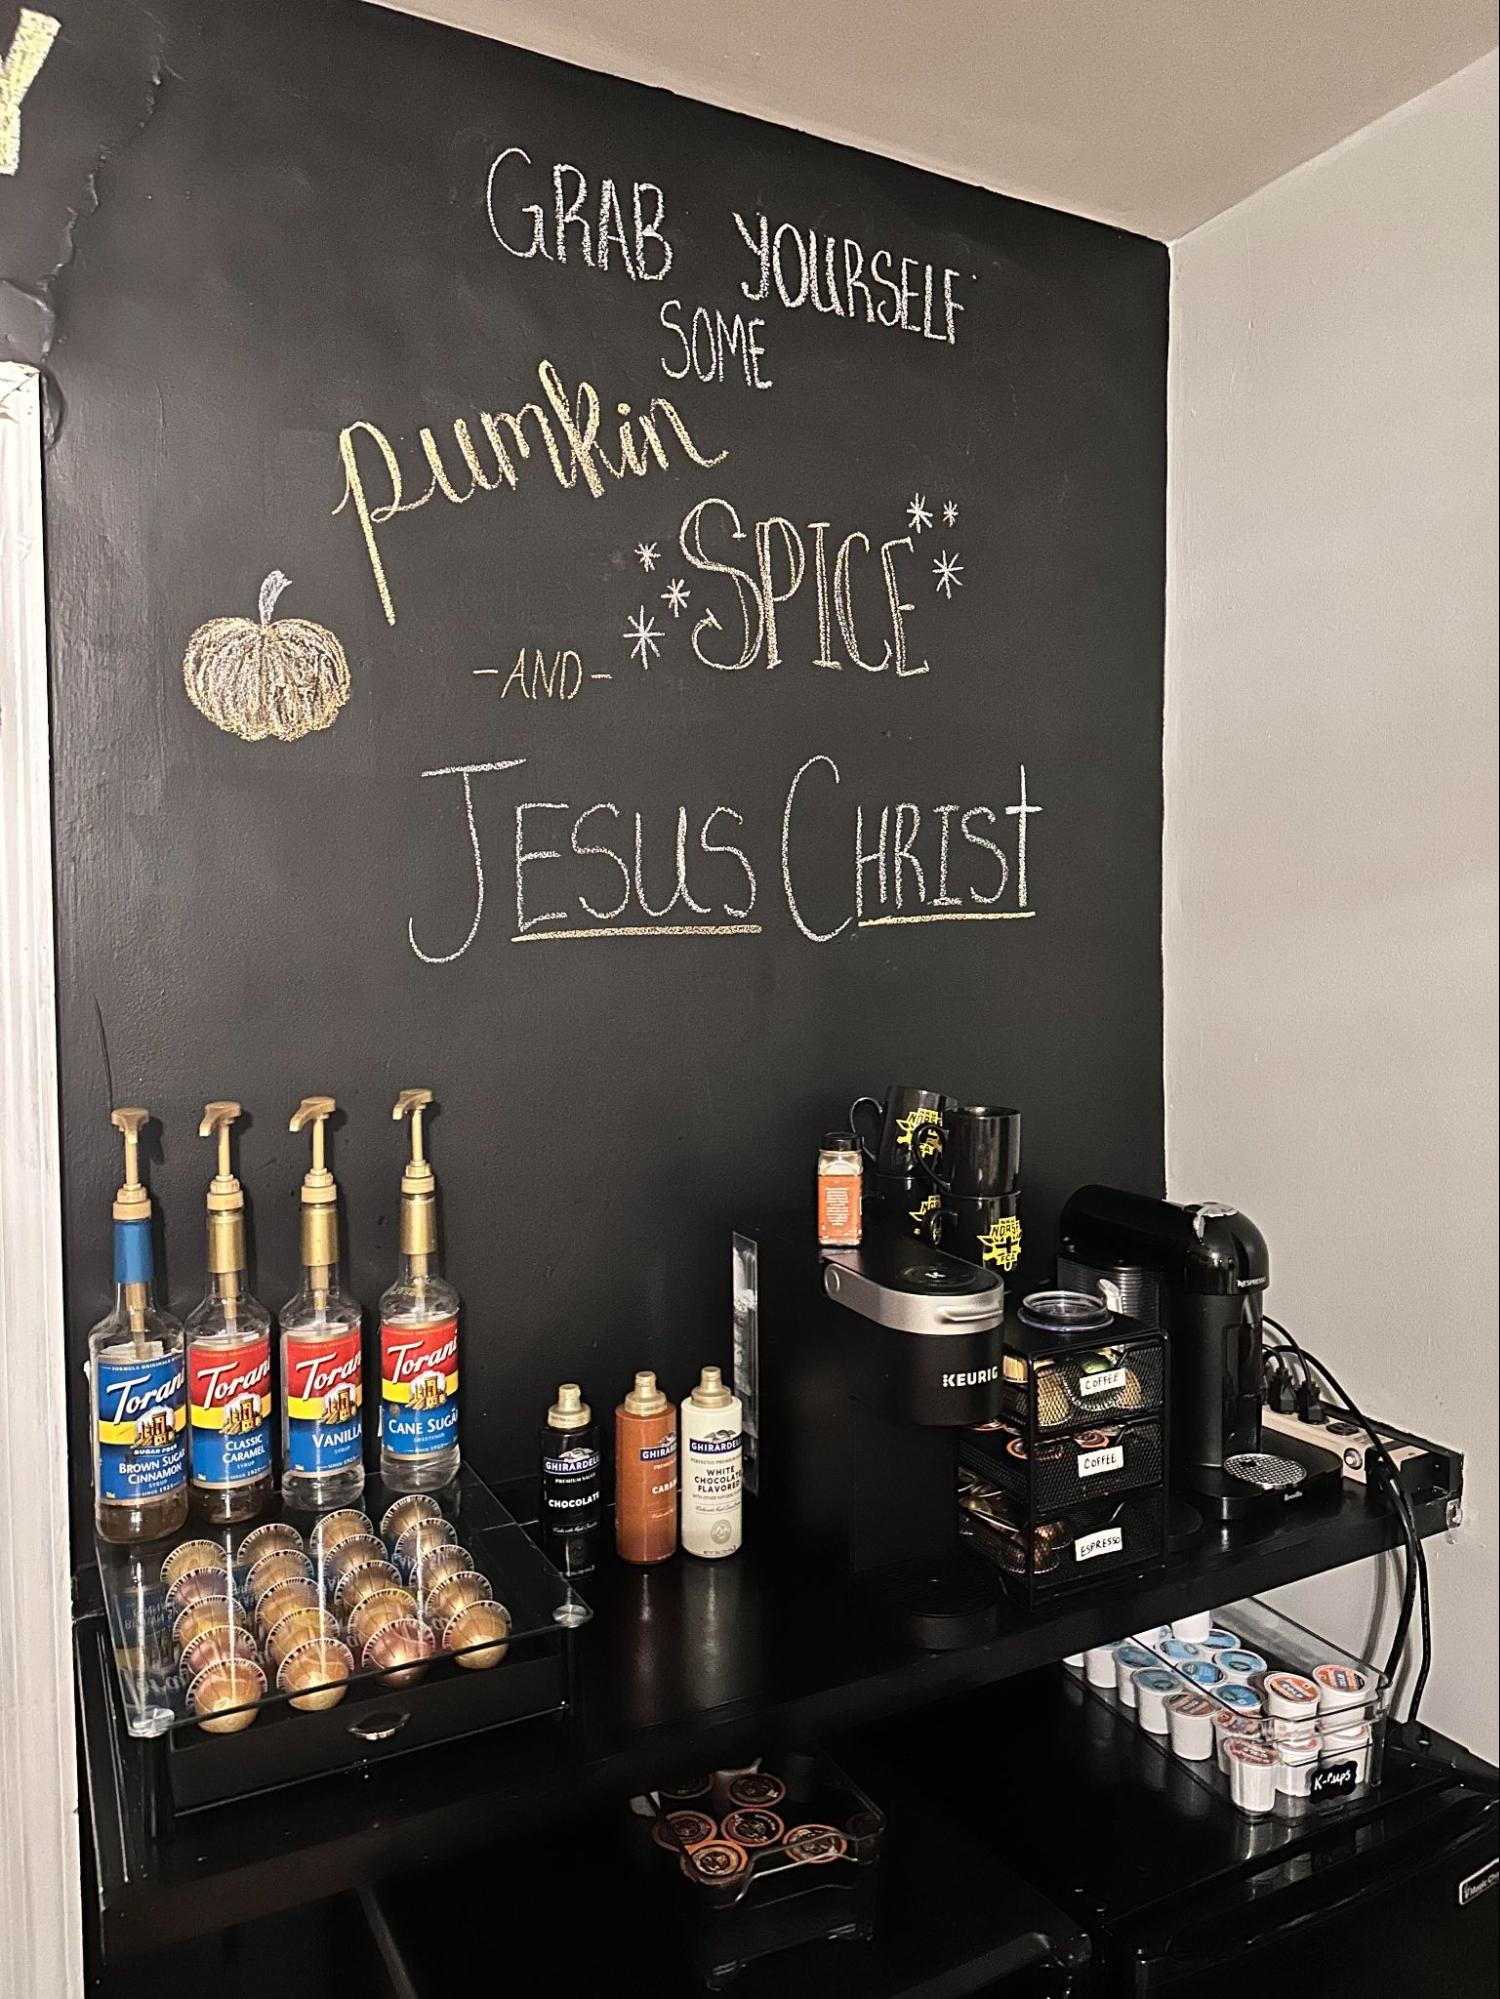 GRAB YOURSELF
SOME
pumkin
SPICE
-AND-
JESUS CHRIST
NORSE
NORSE
Torani
SUGAR FREE
BROWN SUGAR
CINNAMON
SYRUP
Torani
CLASSIC
CARAMEL
SYRUP
Torani
VANILLA
SYRUP
Torani
CANE SUGAR
SWEETENER
GHIRARDELLI
PREMIUM SAUCE
CHOCOLATE
GHIRARDELLI
CARA
GHIRARDELLI
WHITE
CHOCOLATE
FLAVORED
KEURIG
NESPRESSO
COFFEE
COFFEE
ESPRESSO
K-Cups
Magic Chef